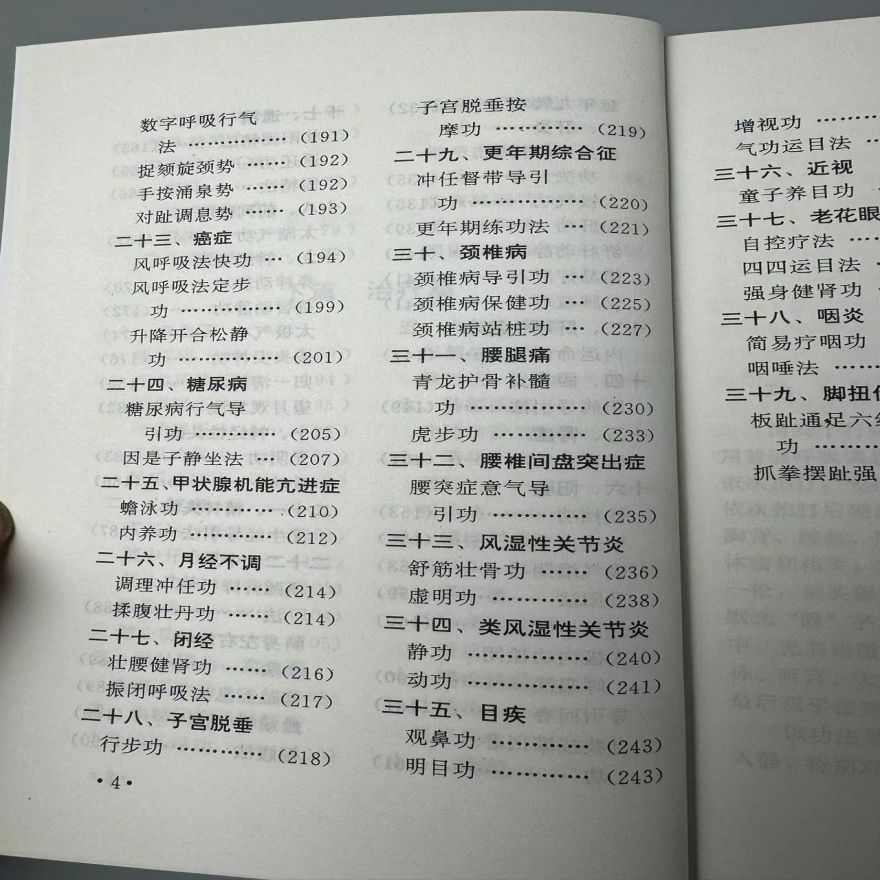 数字呼吸行气
法 ……………… (191)
捉颏旋颈势 …… (192)
手按涌泉势 …… (192)
对趾调息势 …… (193)
二十三、癌症
风呼吸法快功 … (194)
风呼吸法定步
功 ……………… (199)
升降开合松静
功 ……………… (201)
二十四、糖尿病
糖尿病行气导
引功 …………… (205)
因是子静坐法 … (207)
二十五、甲状腺机能亢进症
蟾泳功 ………… (210)
内养功 ………… (212)
二十六、月经不调
调理冲任功 …… (214)
揉腹壮丹功 …… (214)
二十七、闭经
壮腰健肾功 …… (216)
振闭呼吸法 …… (217)
二十八、子宫脱垂
行步功 ………… (218)
·4·
子宫脱垂按
摩功 ………… (219)
二十九、更年期综合征
冲任督带导引
功 …………… (220)
更年期练功法 … (221)
三十、颈椎病
颈椎病导引功 … (223)
颈椎病保健功 … (225)
颈椎病站桩功 … (227)
三十一、腰腿痛
青龙护骨补髓
功 ……………… (230)
虎步功 ………… (233)
三十二、腰椎间盘突出症
腰突症意气导
引功 …………… (235)
三十三、风湿性关节炎
舒筋壮骨功 …… (236)
虚明功 ………… (238)
三十四、类风湿性关节炎
静功 …………… (240)
动功 …………… (241)
三十五、目疾
观鼻功 ………… (243)
明目功 ………… (243)
增视功 ………
气功运目法 …
三十六、近视
童子养目功 …
三十七、老花眼
自控疗法 …
四四运目法 …
强身健肾功 …
三十八、咽炎
简易疗咽功
咽唾法 ……
三十九、脚扭伤
板趾通足六经
功 ………
抓拳摆趾强